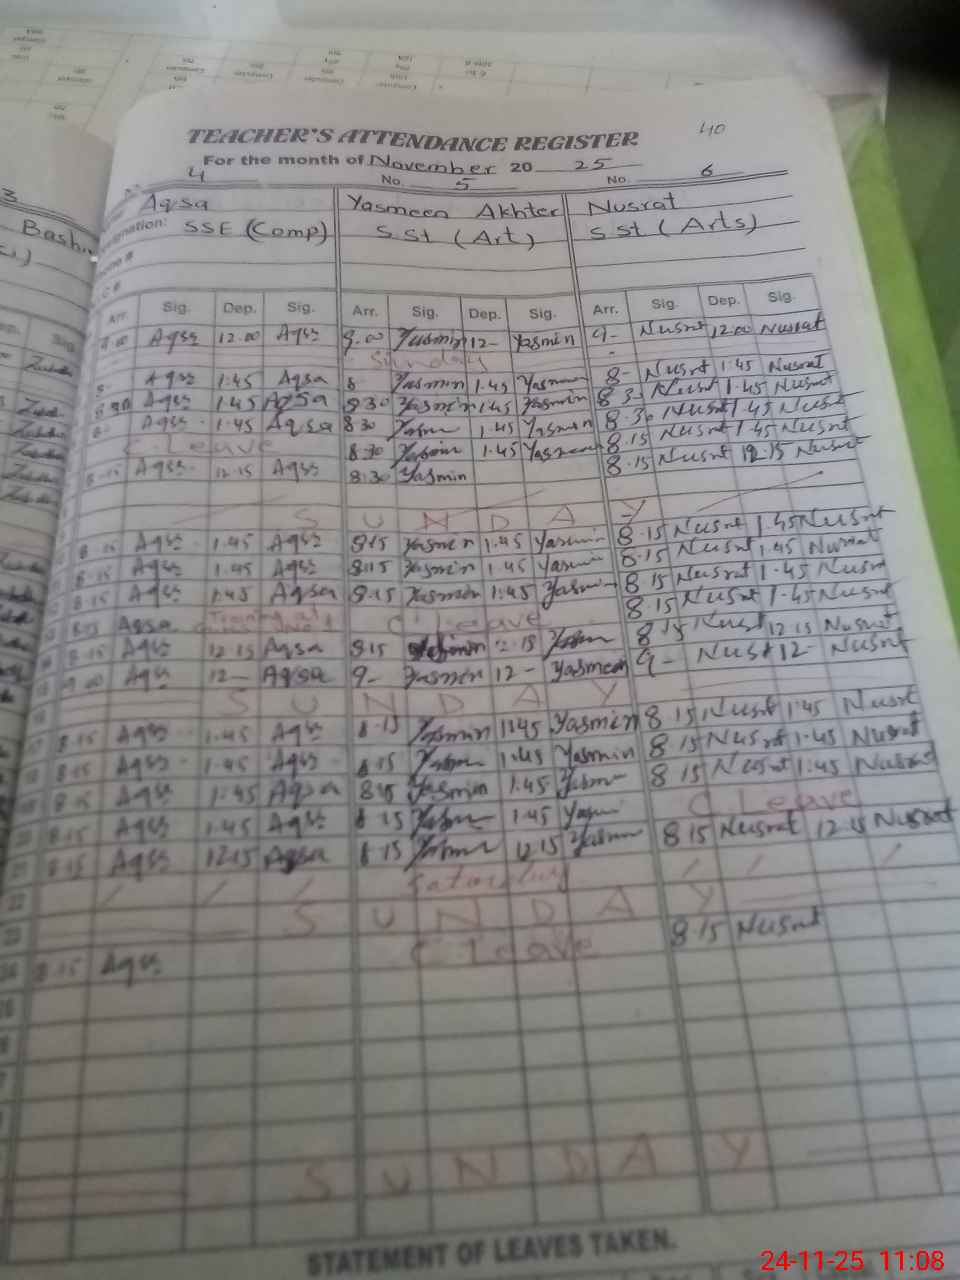 TEACHER'S ATTENDANCE REGISTER
40
For the month of November 20 25
4 No. 5 No. 6
Aqsa Yasmeen Akhter Nusrat
SSE (Comp) S.St (Art) S.St (Arts)
Arr. Sig. Dep. Sig. Arr. Sig. Dep. Sig. Arr. Sig. Dep. Sig.
9.00 Aqsa 12.00 Aqsa 9.00 Yasmin 12- Yasmin 9- Nusrat 12.00 Nusrat
Sunday
8- Aqsa 1.45 Aqsa 8 Yasmin 1.45 Yasmin 8- Nusrat 1.45 Nusrat
8.30 Aqsa 1.45 Aqsa 8.30 Yasmin 1.45 Yasmin 8.3- Nusrat 1.45 Nusrat
8- Aqsa 1.45 Aqsa 8.30 Yasmin 1.45 Yasmin 8.30 Nusrat 1.45 Nusrat
C. Leave 8.30 Yasmin 1.45 Yasmeen 8.15 Nusrat 1.45 Nusrat
8.15 Aqsa 12.15 Aqsa 8.30 Yasmin 8.15 Nusrat 12.15 Nusrat
SUNDAY
8.15 Aqsa 1.45 Aqsa 8.15 Yasmin 1.45 Yasmin 8.15 Nusrat 1.45 Nusrat
8.15 Aqsa 1.45 Aqsa 8.15 Yasmin 1.45 Yasmin 8.15 Nusrat 1.45 Nusrat
8.15 Aqsa 1.45 Aqsa 8.15 Yasmin 1.45 Yasmin 8.15 Nusrat 1.45 Nusrat
8.15 Aqsa Training at C. Leave 8.15 Nusrat 1.45 Nusrat
8.15 Aqsa 12.15 Aqsa 8.15 12.15 Yasmin 8.15 Nusrat 12.15 Nusrat
9.00 Aqsa 12- Aqsa 9- Yasmin 12- Yasmeen 9- Nusrat 12- Nusrat
SUNDAY
17 8.15 Aqsa 1.45 Aqsa 8.15 Yasmin 1.45 Yasmin 8.15 Nusrat 1.45 Nusrat
18 8.15 Aqsa 1.45 Aqsa 8.15 Yasmin 1.45 Yasmin 8.15 Nusrat 1.45 Nusrat
19 8.15 Aqsa 1.45 Aqsa 8.15 Yasmin 1.45 Yasmin 8.15 Nusrat 1.45 Nusrat
20 8.15 Aqsa 1.45 Aqsa 8.15 Yasmin 1.45 Yasmin C. Leave
21 8.15 Aqsa 12.15 Aqsa 8.15 Yasmin 12.15 Yasmin 8.15 Nusrat 12.15 Nusrat
22 Saturday
23 SUNDAY
24 8.15 Aqsa C. Leave 8.15 Nusrat
SUNDAY
STATEMENT OF LEAVES TAKEN.
24-11-25 11:08